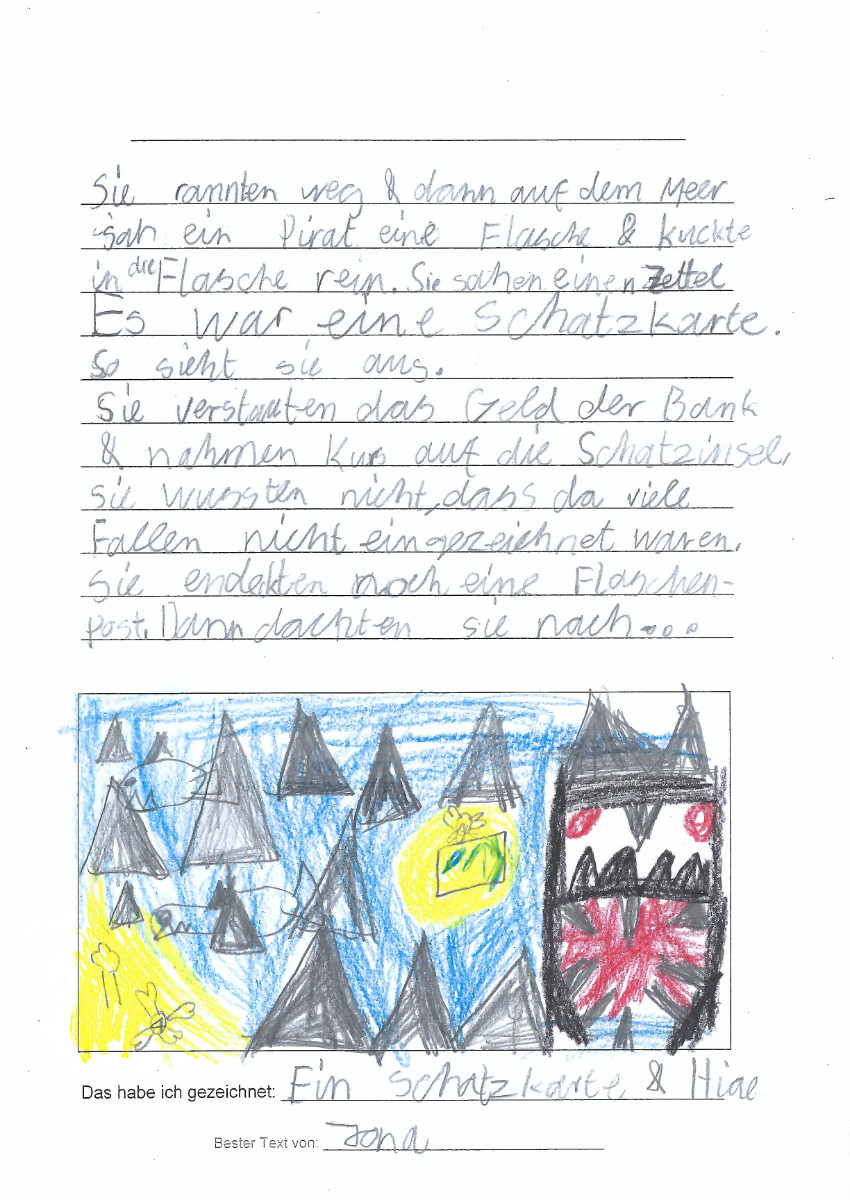 Sie rannten weg & dann auf dem Meer
sah ein Pirat eine Flasche & kuckte
in die Flasche rein. Sie sahen einen Zettel
Es war eine Schatzkarte.
So sieht sie aus.
Sie verstauten das Geld der Bank
& nahmen Kurs auf die Schatzinsel,
sie wussten nicht, dass da viele
Fallen nicht eingezeichnet waren.
Sie endekten noch eine Flaschen-
post. Dann dachten sie nach...
Das habe ich gezeichnet: Ein Schatzkarte & Hiae
Bester Text von: Jona